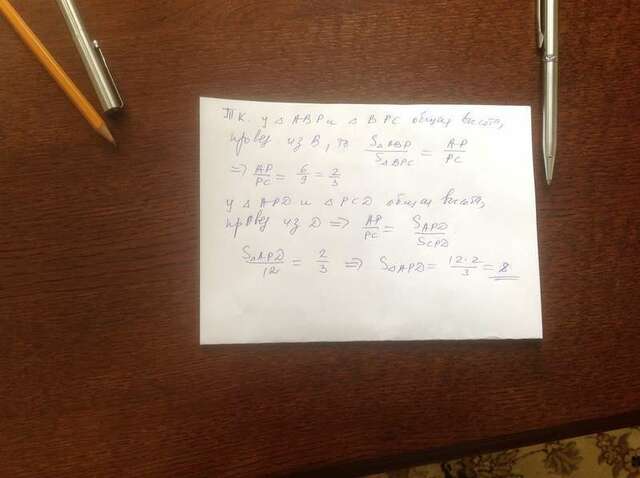 Т.к. у △ABP и △BPC общая высота,
провед из B, то S△ABP/S△BPC = AP/PC
⇒ AP/PC = 6/9 = 2/3
у △APD и △PCD общая высота,
провед из D ⇒ AP/PC = SAPD/SCPD
S△APD/12 = 2/3 ⇒ S△APD = 12·2/3 = 8